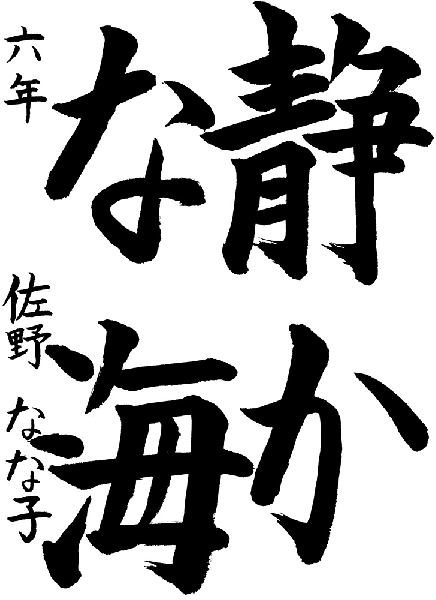 静か
な海
六年 佐野 なな子